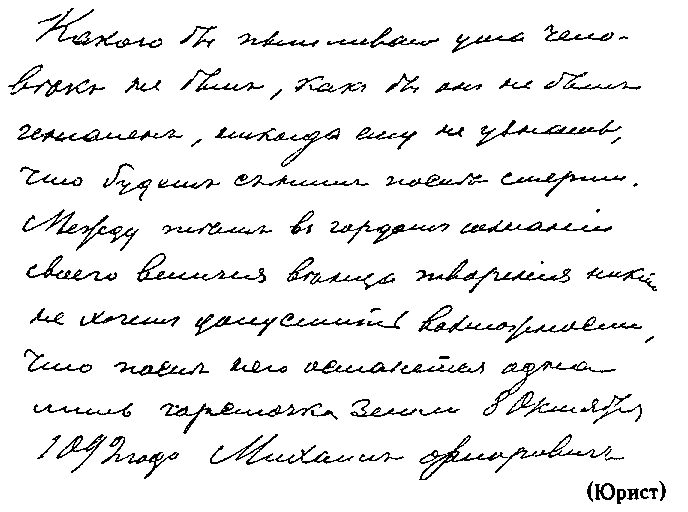 Какого бы пытливаго ума чело-
вѣкъ не былъ, какъ бы онъ не былъ
геніаленъ, никогда ему не узнать,
что будетъ съ нимъ послѣ смерти.
Между тѣмъ въ гордомъ сознаніи
своего величія вѣнца творенія никто
не хочетъ допустить возможности,
что послѣ него останется одна
лишь горсточка земли 8 Октября
1892 года Михаилъ
(Юрист)